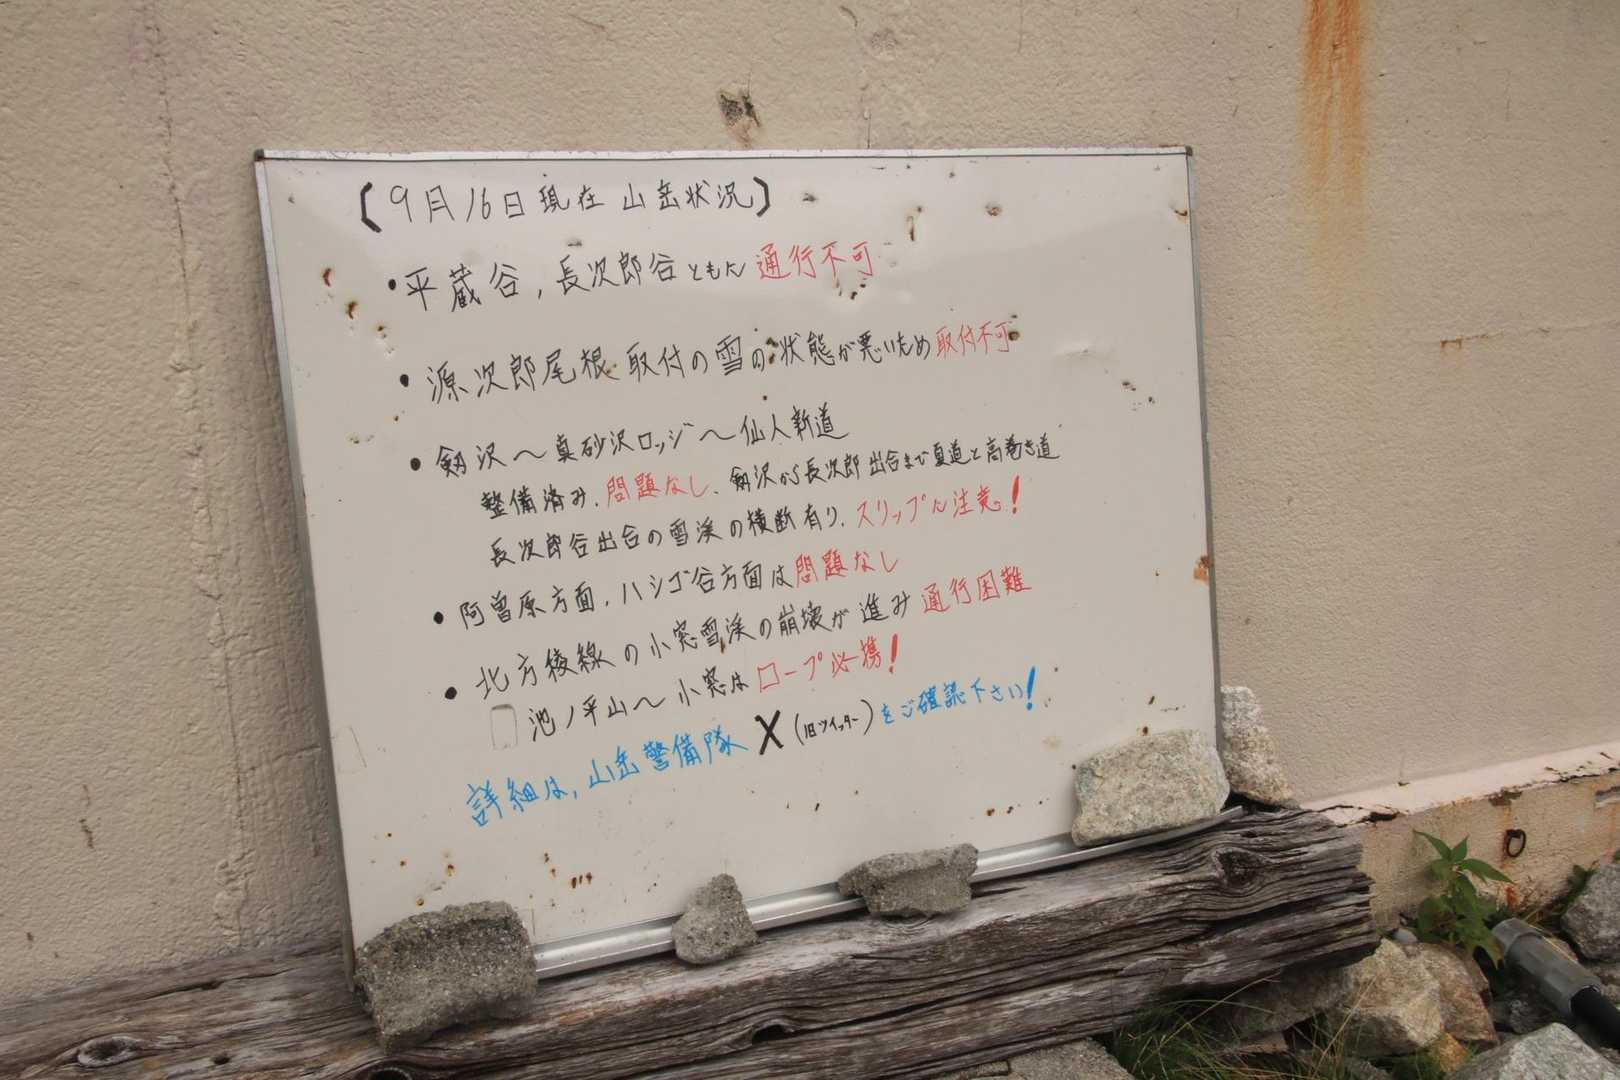 【9月16日現在 山岳状況】
・平蔵谷,長次郎谷ともに通行不可
・源次郎尾根 取付の雪の状態が悪いため取付不可
・剱沢〜真砂沢ロッジ〜仙人新道
整備済み、問題なし、剱沢から長次郎出合まで夏道と高巻き道
長次郎谷出合の雪渓の横断有り、スリップに注意。!
・阿曽原方面,ハシゴ谷方面は問題なし
・北方稜線の小窓雪渓の崩壊が進み通行困難
池ノ平山〜小窓はロープ必携!
詳細は,山岳警備隊 X (旧ツイッター)をご確認下さい!